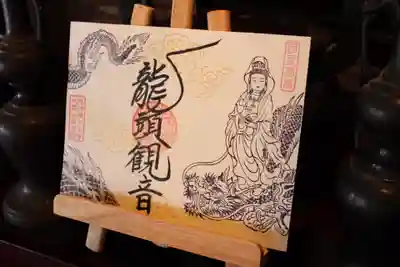 龍頭観音